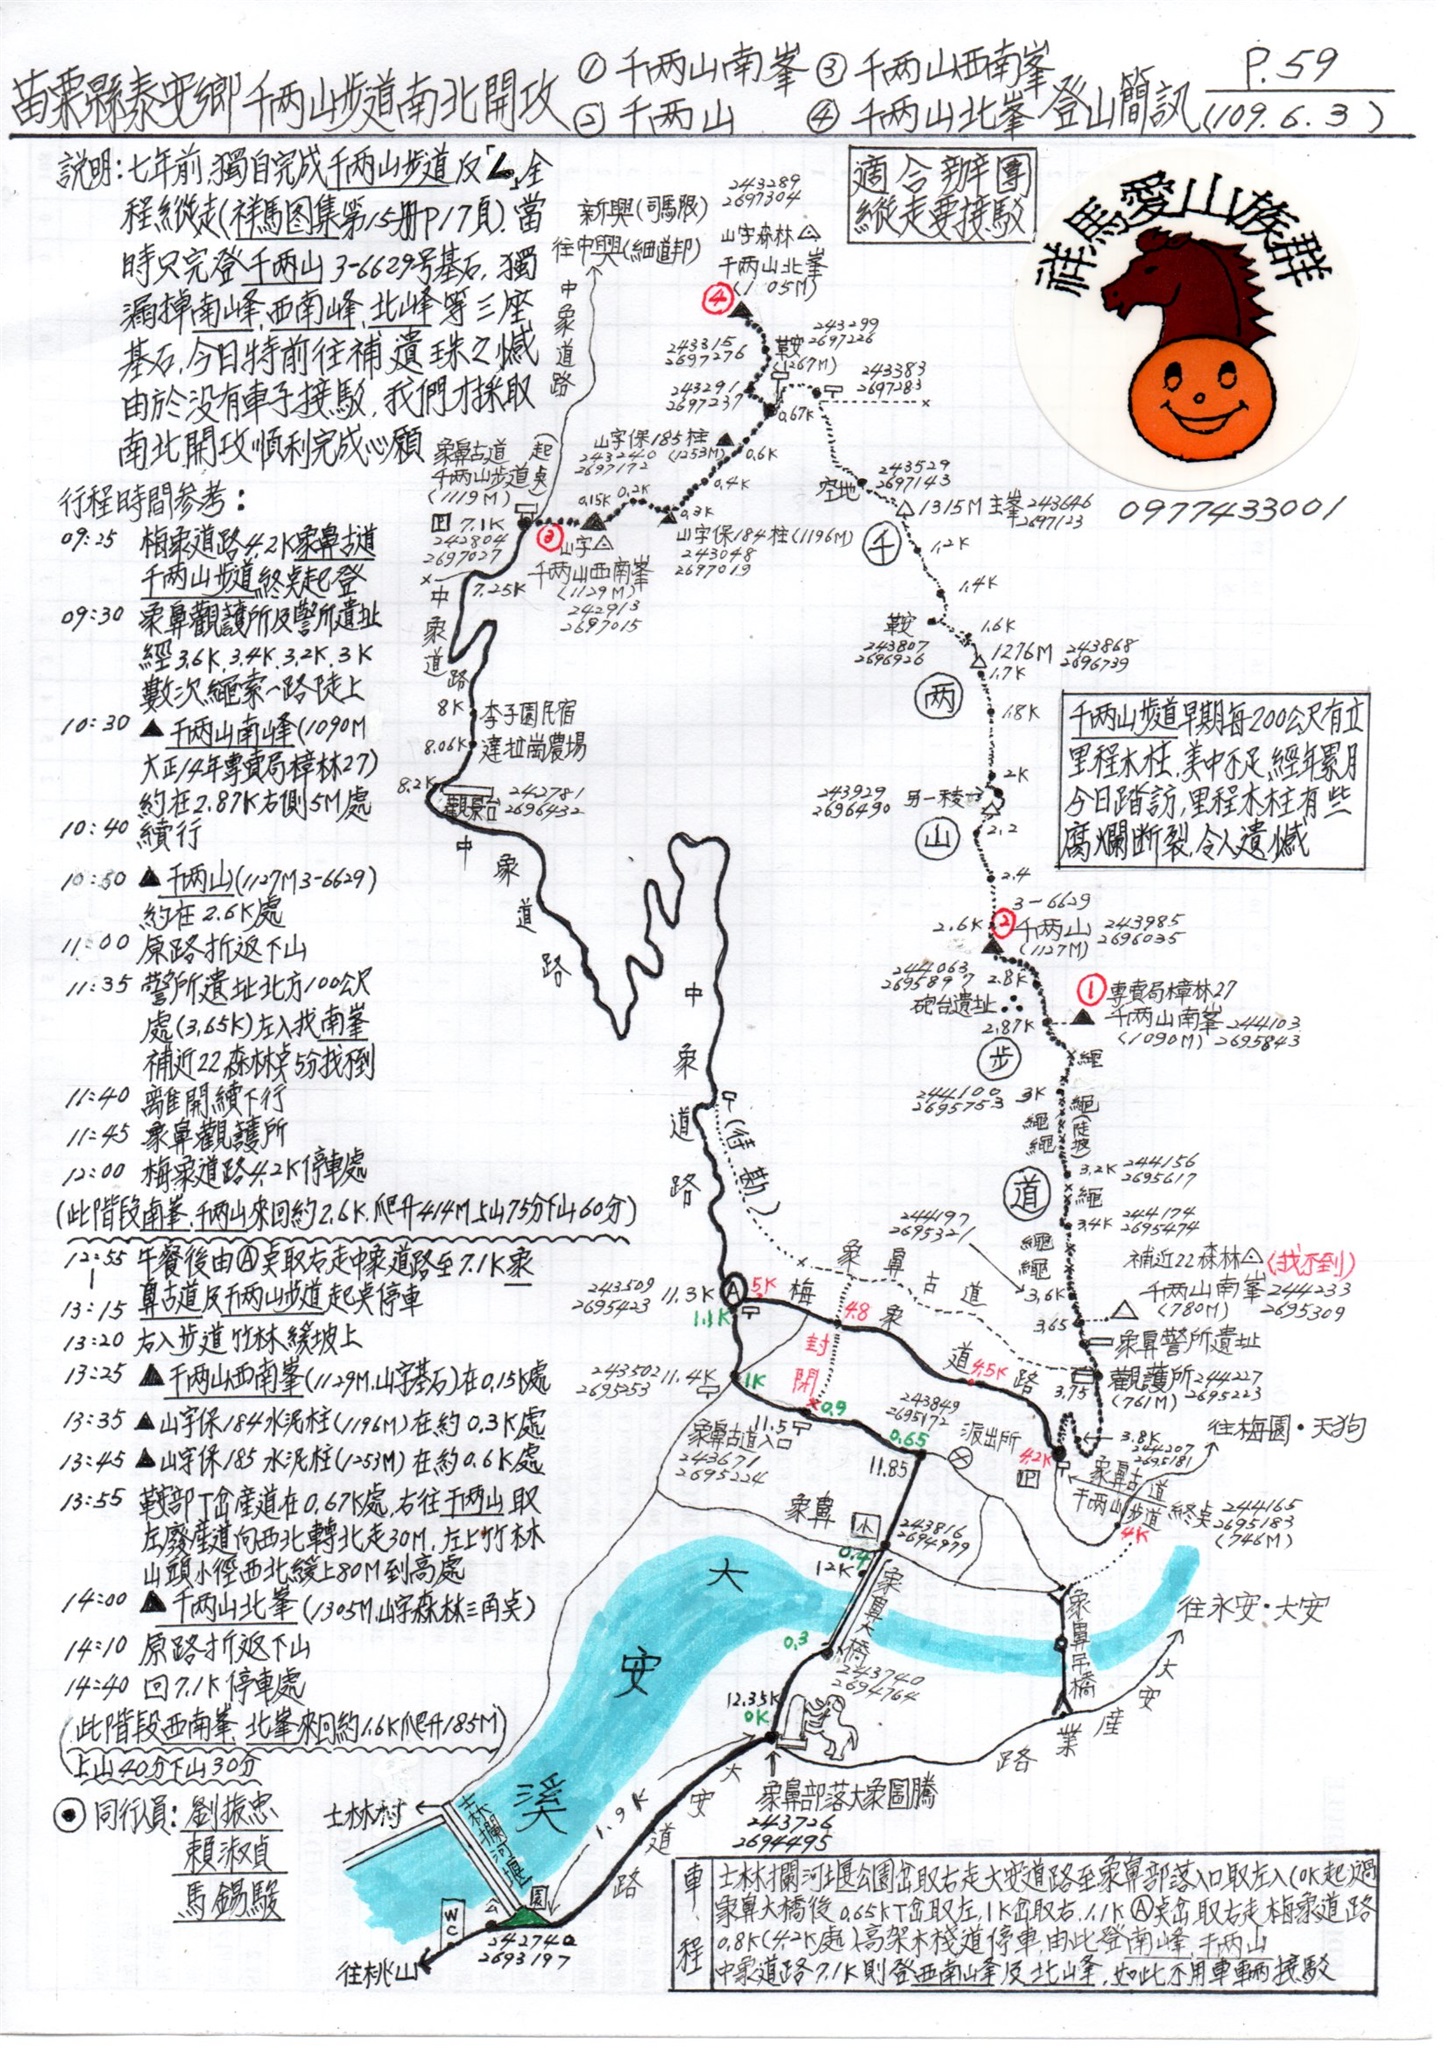 苗栗縣泰安鄉千两山步道南北開攻 ①千两山南峯 ③千两山西南峯
②千两山 ④千两山北峯 登山簡訊
P.59
(109.6.3)
說明:七年前,獨自完成千两山步道反「ㄥ」全
程縱走(祥馬图集第15册P17頁).當
時只完登千两山3-6629号基石,獨
漏掉南峰、西南峰、北峰等三座
基石,今日特前往補遺珠之憾
由於没有車子接駁,我們才採取
南北開攻順利完成心願
行程時間參考:
09:25 梅象道路4.2K象鼻古道
千两山步道終点起登
09:30 象鼻觀護所及警所遺址
經3.6K.3.4K.3.2K.3K
數次繩索一路陡上
10:30 ▲千两山南峰(1090M
大正14年專賣局樟林27)
約在2.87K右側5M處
10:40 續行
10:50 ▲千两山(1127M3-6629)
約在2.6K處
11:00 原路折返下山
11:35 警所遺址北方100公尺
處(3.65K)左入找南峯
補近22森林点5分找不到
11:40 離開續下行
11:45 象鼻觀護所
12:00 梅象道路4.2K停車處
(此階段南峯、千两山來回約2.6K.爬升414M上山75分下山60分)
12:55 午餐後由Ⓐ点取右走中象道路至7.1K象
|
13:15 鼻古道及千两山步道起点停車
13:20 右入步道竹林緩坡上
13:25 ▲千两山西南峯(1129M.山字基石)在0.15K處
13:35 ▲山字保184水泥柱(1196M)在約0.3K處
13:45 ▲山字保185水泥柱(1253M)在約0.6K處
13:55 鞍部丁岔產道在0.67K處,右往千两山取
左廢産道向西北轉北走30M,左上竹林
山頭小徑西北緩上80M到高處
14:00 ▲千两山北峯(1305M.山字森林三角点)
14:10 原路折返下山
14:40 回7.1K停車處
(此階段西南峯、北峯來回約1.6K爬升185M)
上山40分下山30分
⦿同行員:劉振忠
賴淑貞
馬錫駿
適合辦團
縱走要接駁
祥馬愛山族群
0977433001
新興(司馬限)
往中興(細道邦)
中象道路
243289
2697304
山字森林
千两山北峯
(1305M)
④
243315
2697276
鞍
(1267M)
243299
2697226
243291
2697237
243383
2697283
0.67K
山字保185柱
243240 (1253M)
2697172
0.6K
0.4K
0.3K
0.2K
0.15K
象鼻古道(起
千两山步道点)
(1119M)
P 7.1K
242804
2697027
③
山字
千两山西南峯
(1129M)
242913
2697015
山字保184柱(1196M)
243048
2697019
空地
243529
2697143
1315M主峯 243646
2697123
千
1.2K
1.4K
鞍
243807
2696926
1.6K
1276M 243868
2696739
1.7K
两
1.8K
2K
243929
2696490
另一稜
山
2.2
2.4
3-6629
2.6K ② 千两山 243985
(1127M) 2696035
244063
2695897
2.8K
砲台遺址
2.87K
①專賣局樟林27
千两山南峯 244103
(1090M) 2695843
步
繩
244100
2695753
3K
繩
繩
繩(陡坡)
道
3.2K 244156
2695617
繩
3.4K 244174
2695474
繩
繩
244197
2695321
3.6K
補近22森林(找不到)
千两山南峯 244233
(780M) 2695309
3.65
象鼻警所遺址
3.75
觀護所 244227
(761M) 2695223
3.8K
244207
2695181
往梅園·天狗
象鼻古道
千两山步道終点 244165
2695183
(746M)
4K
千两山步道早期每200公尺有立
里程木柱,美中不足,經年累月
今日踏訪,里程木柱有些
腐爛断裂,令人遺憾
7.25K
中象道路
8K 李子園民宿
8.06K 達拉崗農場
8.2K
觀景台
242781
2696432
中象道路
中象道路
(待勘)
243509
2695423
11.3K Ⓐ
1.1K
5K
4.8
梅象道路
4.5K
4.2K
P
象鼻古道
封閉
243502
2695253
11.4K
1K
0.9
象鼻古道入口
243671
2695224
11.5
243849
2695172
0.65
派出所
11.85
象鼻
小
243816
2694979
0.4
12K
象鼻大橋
0.3
243740
2694764
12.35K
0K
象鼻吊橋
往永安·大安
大安產業道路
大安溪
象鼻部落大象圖騰
243726
2694495
大安道路
1.9K
士林村
士林攔河堰
公園
WC
242740
2693197
往桃山
車程
士林攔河堰公園岔取右走大安道路至象鼻部落入口取左入(0K起)過
象鼻大橋後0.65K丁岔取左,1K岔取右,1.1KⒶ点岔取右走梅象道路
0.8K(4.2K處)高架木棧道停車,由此登南峰、千两山
中象道路7.1K則登西南峰及北峰,如此不用車輛接駁